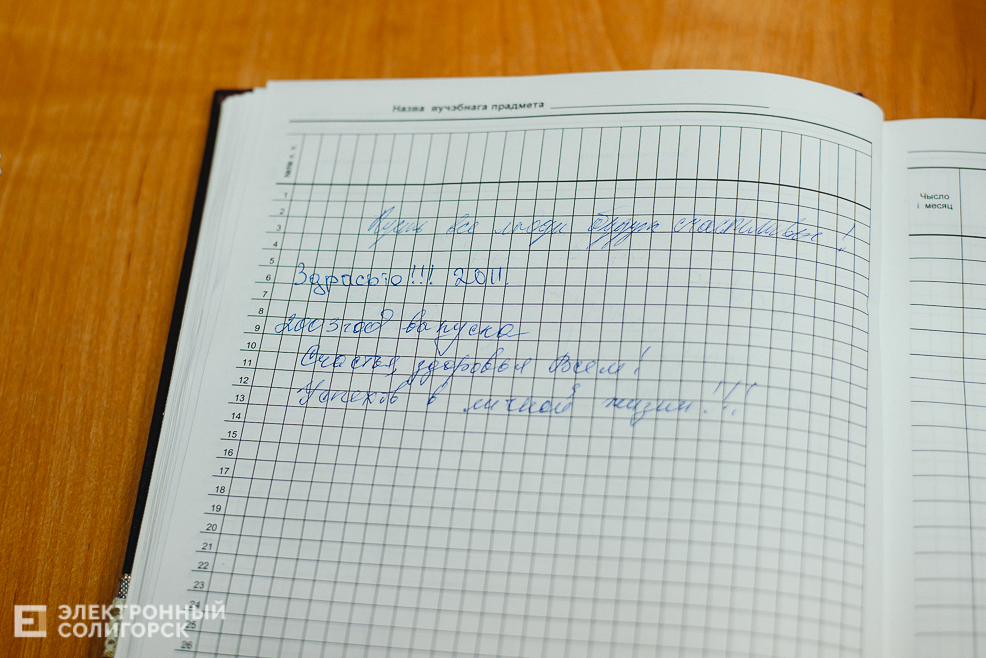 Назва вучэбнага прадмета
№№ п. п.
Чысло
і месяц
1
2
Пусть все люди будут счастливые!
3
4
5
Здрасьте!!! 2011.
6
7
8
2003 год выпуска
9
10
Счастья, здоровья Всем!
11
12
Успехов в личной жизни!!!
13
14
15
16
17
18
19
20
21
22
23
24
25
26
ЭЛЕКТРОННЫЙ
СОЛИГОРСК